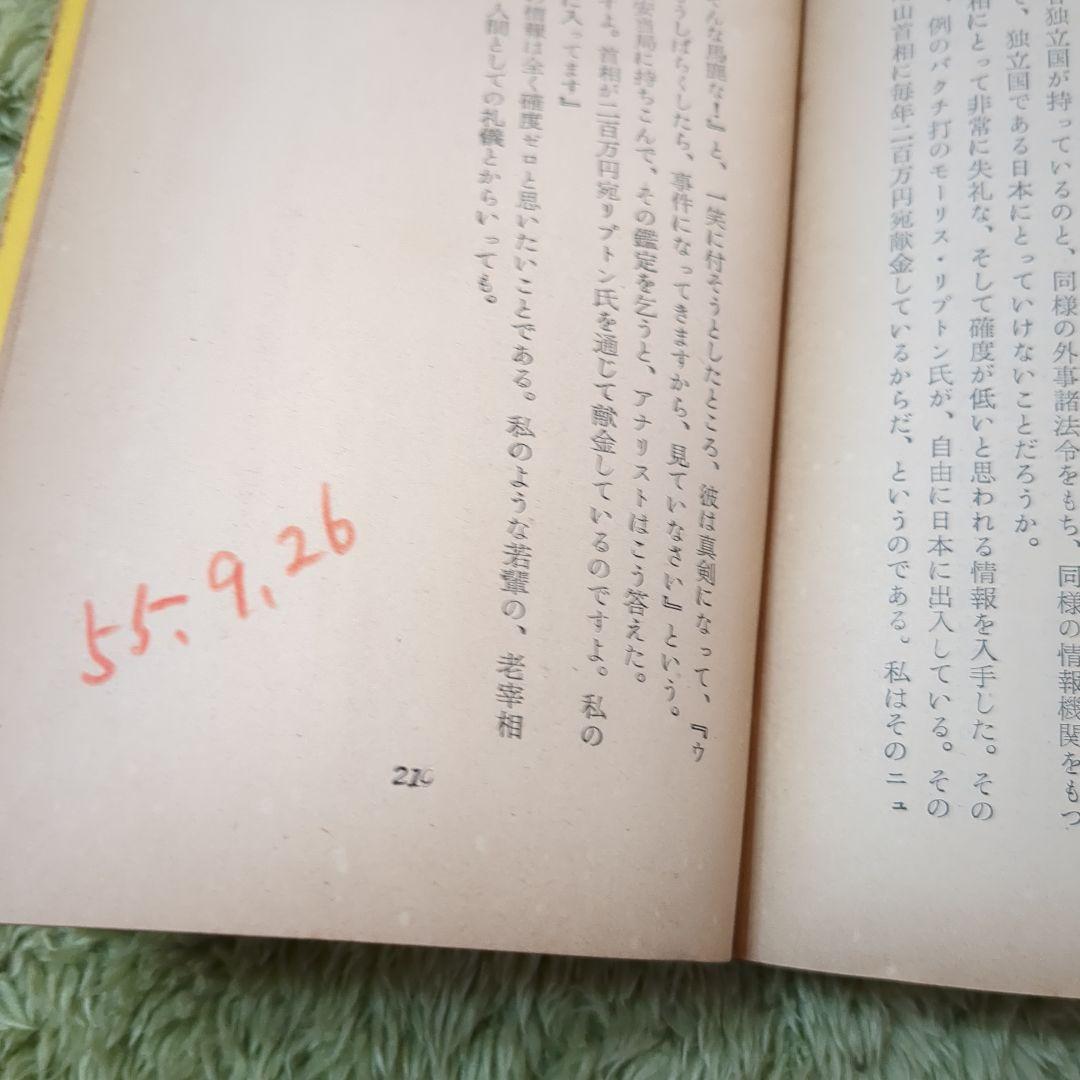 各独立国が持っているのと、同様の外事諸法令をもち、同様の情報機関をもつ
、独立国である日本にとっていけないことだろうか。
相にとって非常に失礼な、そして確度が低いと思われる情報を入手した。その
、例のバクチ打のモーリス・リプトン氏が、自由に日本に出入している。その
山首相に毎年二百万円宛献金しているからだ、というのである。私はそのニュ
そんな馬鹿な！』と、一笑に付そうとしたところ、彼は真剣になって、『ゥ
うしばらくしたら、事件になってきますから、見ていなさい』という。
安当局に持ちこんで、その鑑定を乞うと、アナリストはこう答えた。
すよ。首相が二百万円宛リプトン氏を通じて献金しているのですよ。私の
に入ってます』
情報は全く確度ゼロと思いたいことである。私のような若輩の、老宰相
人間としての礼儀とからいっても。
55.9.26